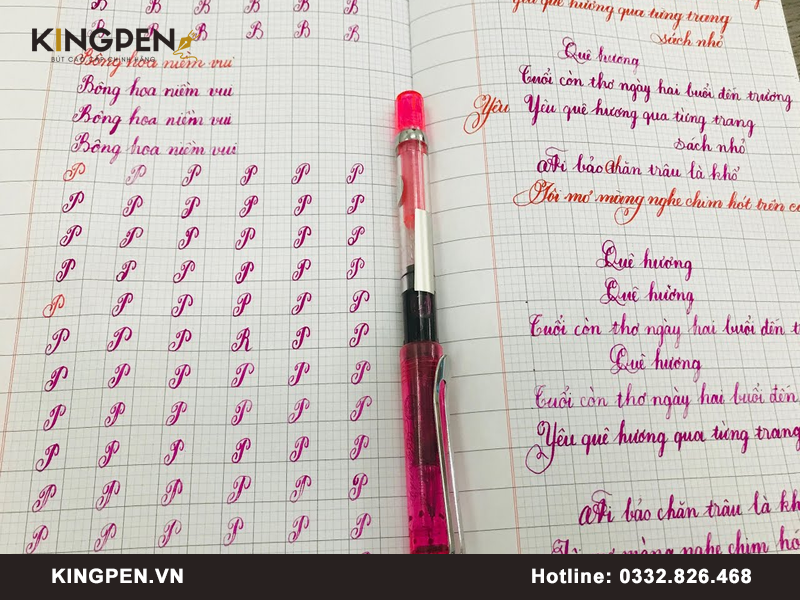 B B B B B B
KINGPEN
BÚT CAO CẤP CHÍNH HÃNG
B B B B B B
Bông hoa niềm vui
Bông hoa niềm vui
Bông hoa niềm vui
Bông hoa niềm vui
P P P P P P
P P P P P P
P P P P P P
P P P P P P
P P P P P P
P P P R P P
P P P P P P
P P P P P P
P P P P P P
P P P P P P
P P P P P P
yêu quê hương qua từng trang
sách nhỏ
Quê hương
Tuổi còn thơ ngày hai buổi đến trường
Yêu Yêu quê hương qua từng trang
sách nhỏ
Ai bảo chăn trâu là khổ
Tôi mơ màng nghe chim hót trên
Quê hương
Quê hường
Tuổi còn thơ ngày hai buổi đến
Quê hương
Tuổi còn thơ ngày hai buổi đến
Yêu quê hương qua từng trang
Ai bảo chăn trâu là
Tôi mơ màng nghe chim hót
KINGPEN.VN
Hotline: 0332.826.468